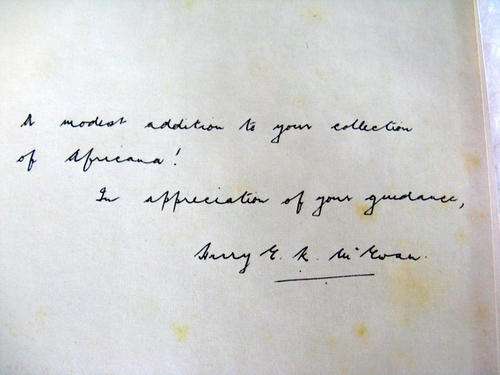 A modest addition to your collection
of Africana!
In appreciation of your guidance,
Harry E. K. McEwan.